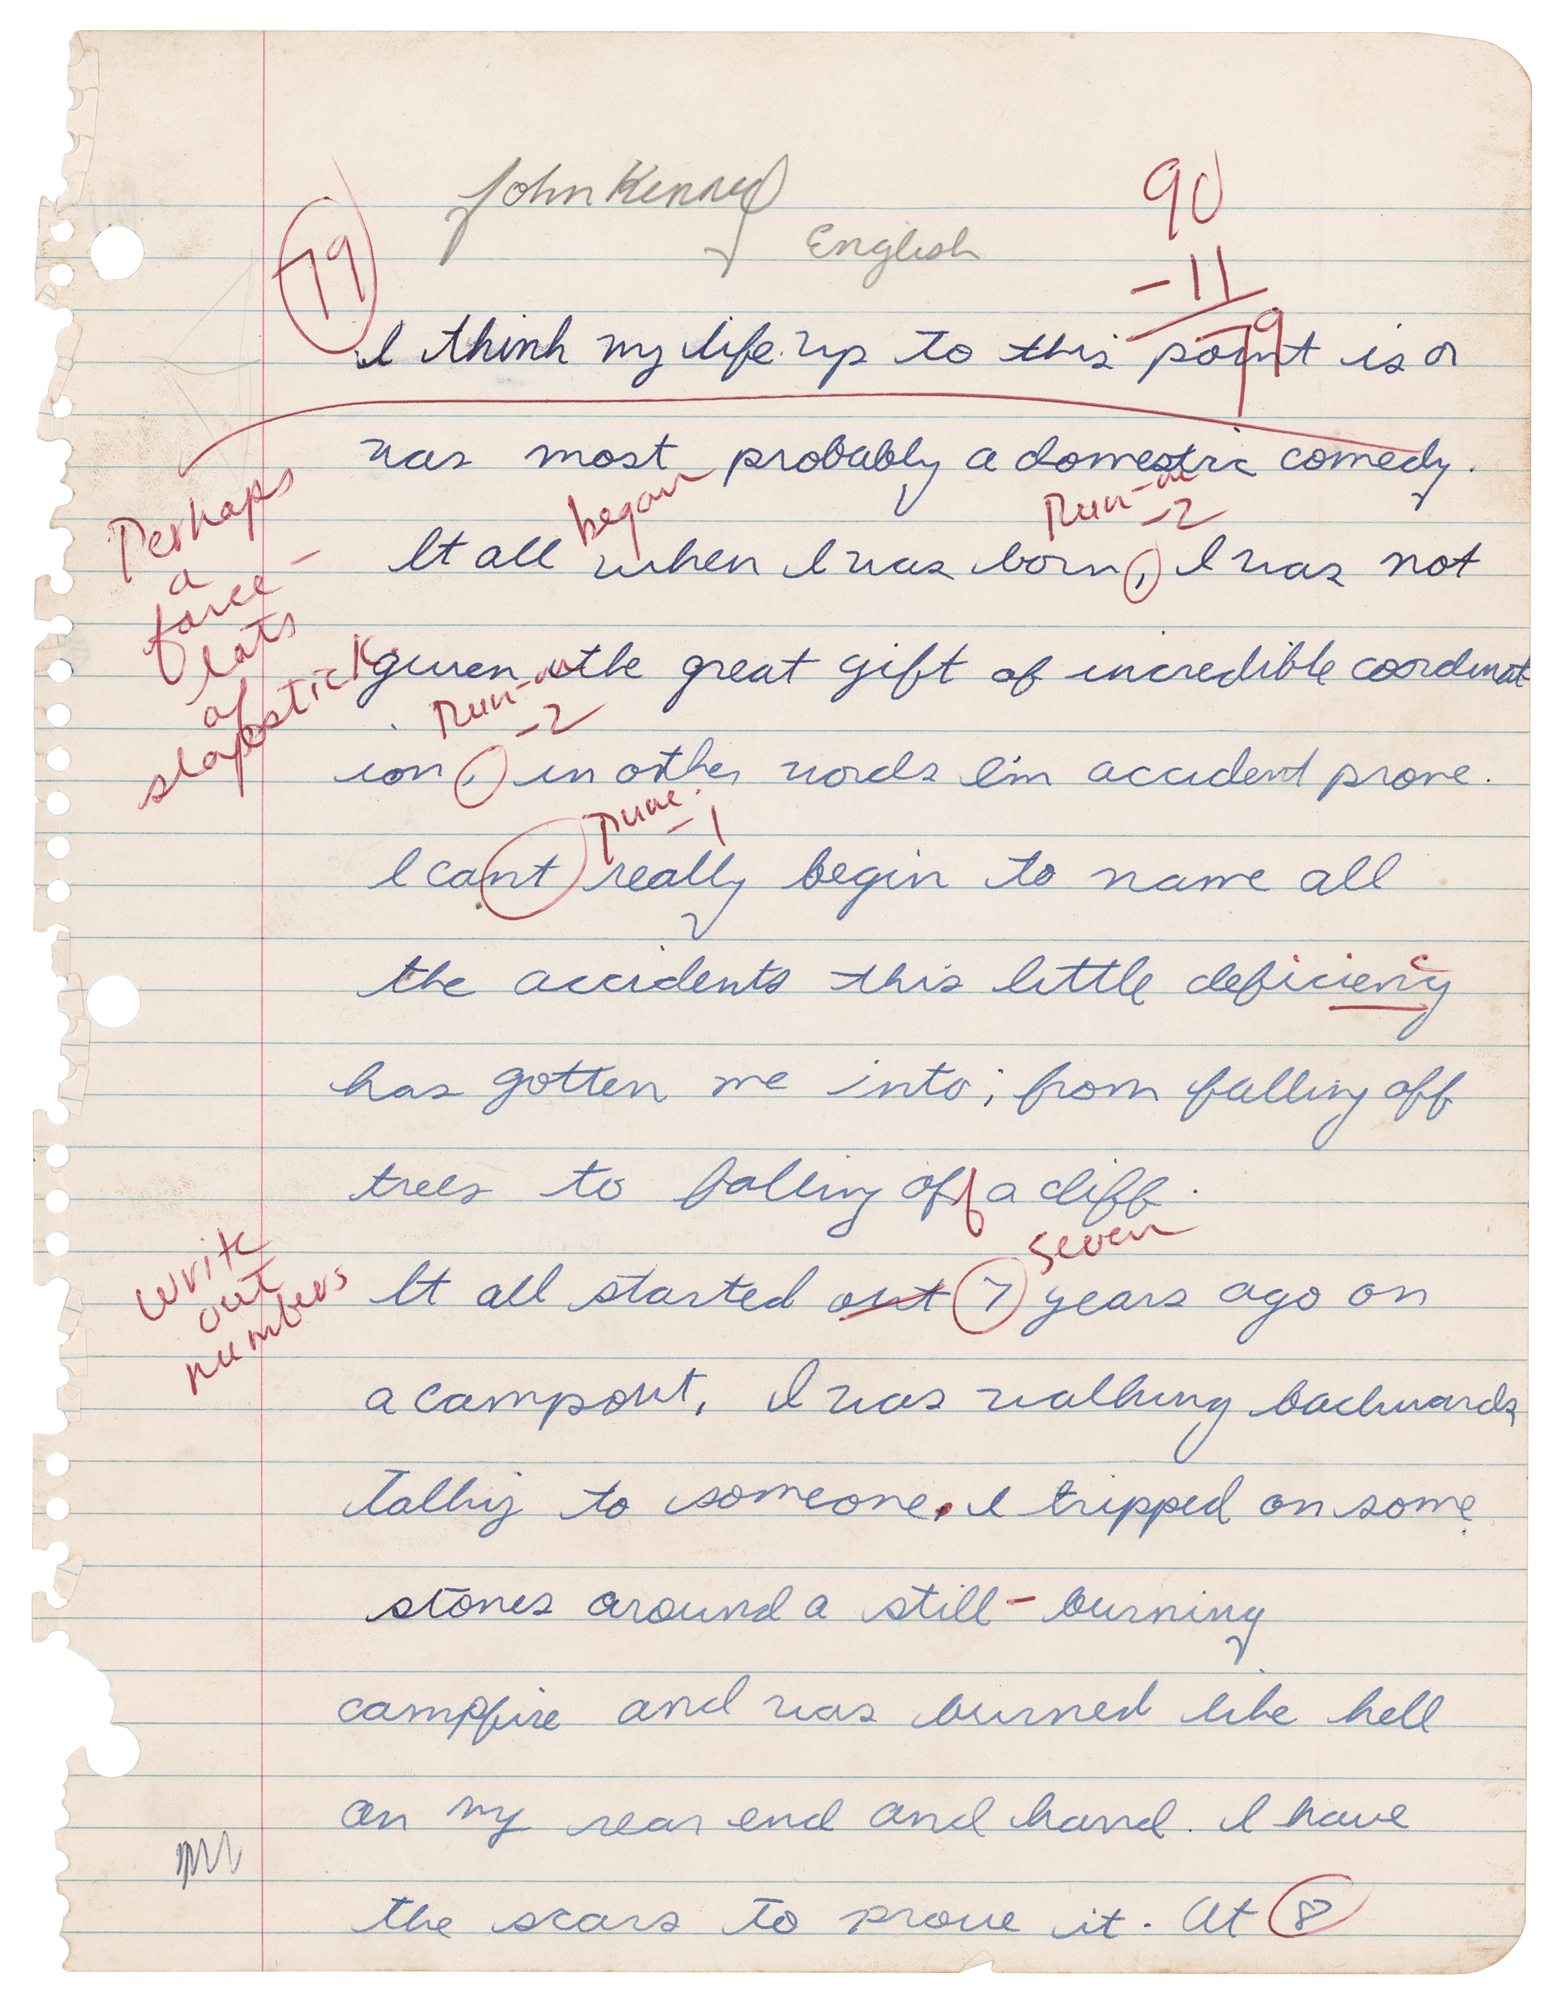 John Kennedy
English
90
-11
79
79
I think my life up to this point is or
was most probably a domestic comedy.
began
Run-on
-2
It all when I was born, I was not
Perhaps
a
farce -
lots
of
slapstick
given the great gift of incredible coordinat
Run-on
-2
ion, in other words I'm accident prone.
Punc.
-1
I cant really begin to name all
the accidents this little deficiency
c
has gotten me into; from falling off
trees to falling off a cliff.
Write
out
numbers
seven
It all started out 7 years ago on
a campout, I was walking backwards
talking to someone. I tripped on some
stones around a still-burning
campfire and was burned like hell
on my rear end and hand. I have
the scars to prove it. At 8